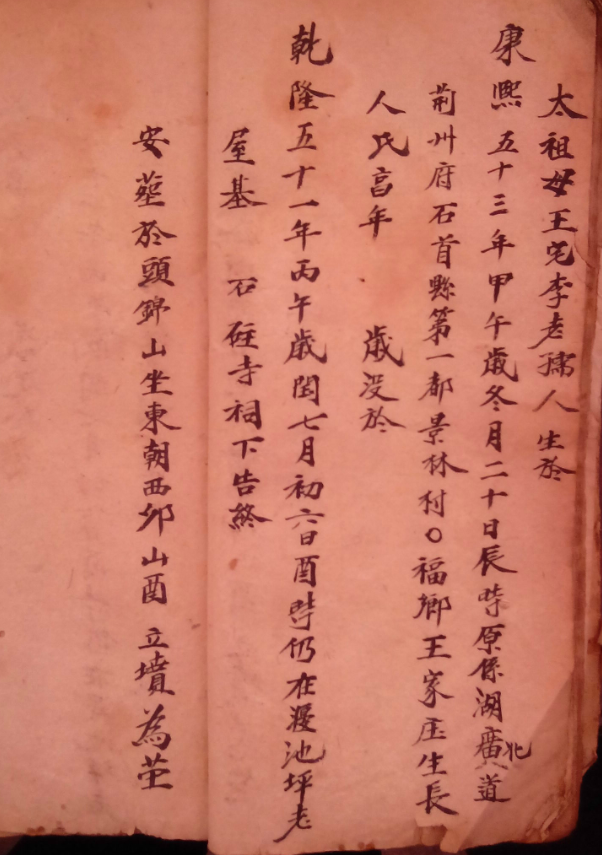 太祖母王宅李老孺人生於
康熈五十三年甲午歲冬月二十日辰時原係湖廣北道
荊州府石首縣第一都景林村〇福鄉王家庄生長
人氏享年 歲没於
乾隆五十一年丙午歲閏七月初六日酉時仍在池坪老
屋基 石硅寺祠下告終
安塟於頭錦山坐東朝西卯山酉 立墳為茔